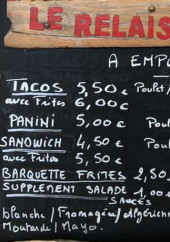 LE RELAIS
A EMPO
TACOS 5,50€ Poulet/
avec Frites 6,00€
PANINI 5,00€ Poul
SANDWICH 4,50€ Poul
avec Frites 5,50
BARQUETTE FRITES 2,50
SUPPLEMENT SALADE 1,00€
SAUCES
blanche/Fromagère/Algérienn
Moutarde/Mayo.